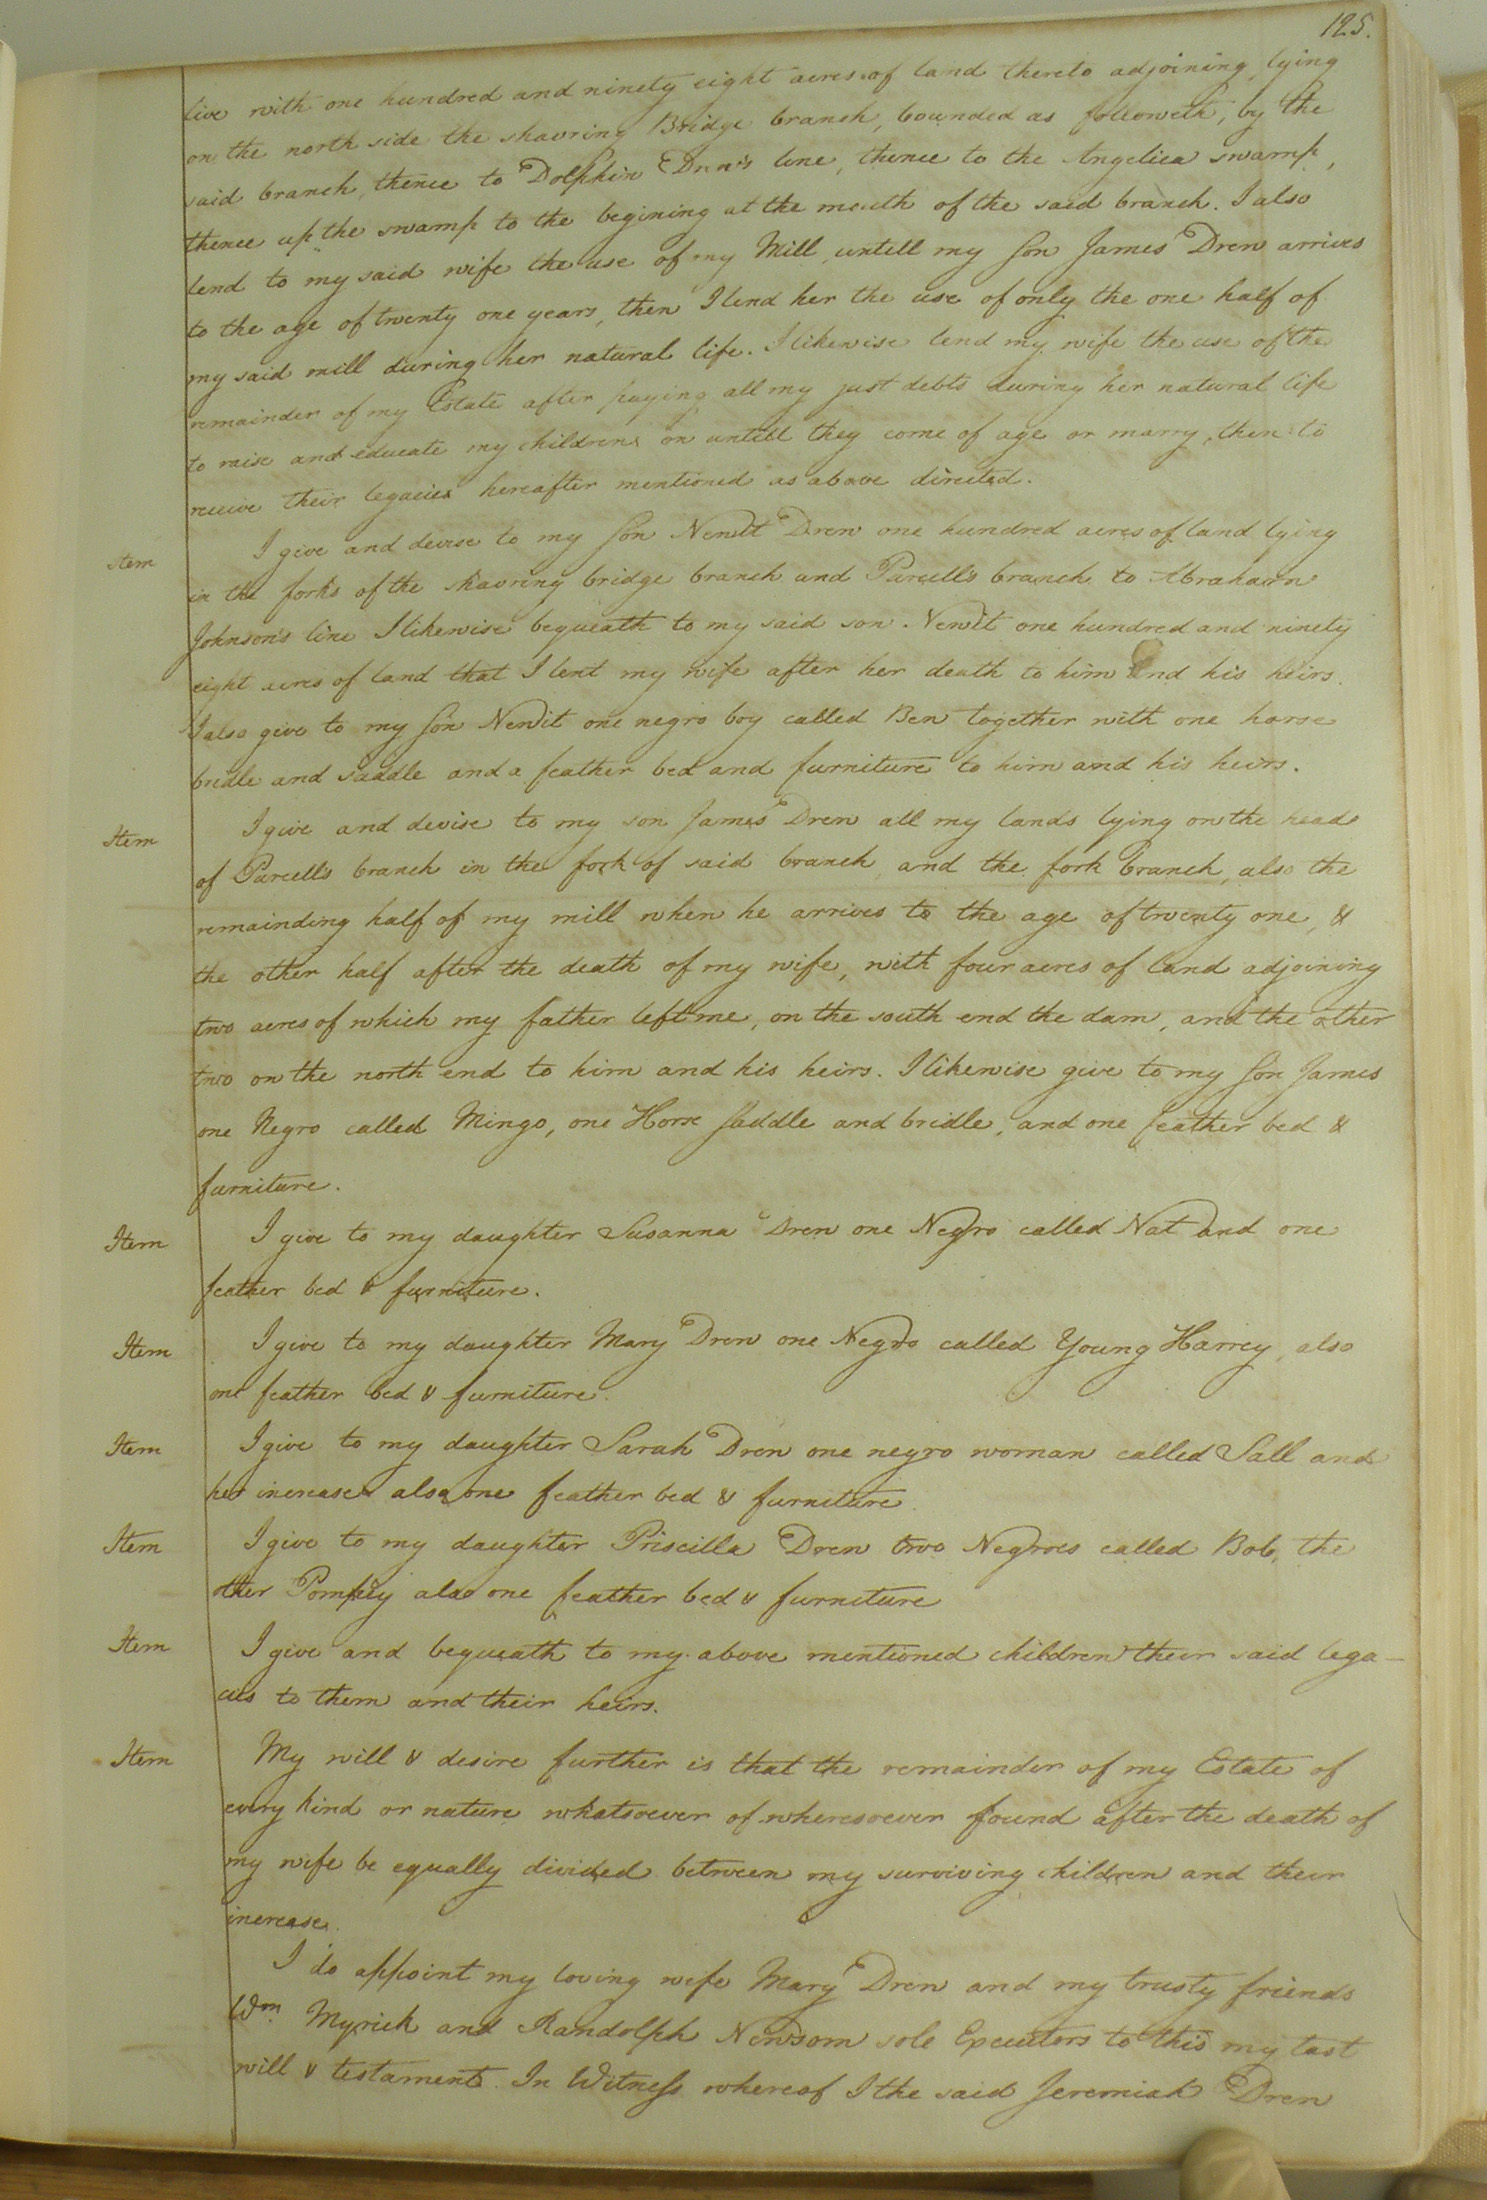 125.
live with one hundred and ninety eight acres of land thereto adjoining, lying
on the north side the skavring Bridge branch, bounded as followeth, by the
said branch, thence to Dolphin Drew's line, thence to the Angelica swamp,
thence up the swamp to the begining at the mouth of the said branch. I also
lend to my said wife the use of my Mill, untill my son James Drew arrives
to the age of twenty one years, then I lend her the use of only the one half of
my said mill during her natural life. I likewise lend my wife the use of the
remainder of my Estate after paying all my just debts during her natural life
to raise and educate my childrens on untill they come of age or marry, then to
receive their legacies hereafter mentioned as above directed.
Item I give and devise to my son Newit Drew one hundred acres of land lying
in the forks of the skavring bridge branch and Purcell's branch to Abraham
Johnson's line I likewise bequeath to my said son Newit one hundred and ninety
eight acres of land that I lent my wife after her death to him and his heirs.
I also give to my son Newit one negro boy called Ben together with one horse
bridle and saddle and a feather bed and furniture to him and his heirs.
Item I give and devise to my son James Drew all my lands lying on the heads
of Purcells branch in the fork of said branch, and the fork branch, also the
remainding half of my mill when he arrives to the age of twenty one, &
the other half after the death of my wife, with four acres of land adjoining
two acres of which my father left me, on the south end the dam, and the other
two on the north end to him and his heirs. I likewise give to my son James
one Negro called Mingo, one Horse saddle and bridle, and one feather bed &
furniture.
Item I give to my daughter Susanna Drew one Negro called Nat and one
feather bed & furniture.
Item I give to my daughter Mary Drew one Negro called Young Harrey, also
one feather bed & furniture.
Item I give to my daughter Sarah Drew one negro woman called Sall and
her increase also one feather bed & furniture
Item I give to my daughter Priscilla Drew two Negroes called Bob, the
other Pompey also one feather bed & furniture
Item I give and bequeath to my above mentioned children their said lega-
cies to them and their heirs.
Item My will & desire further is that the remainder of my Estate of
every kind or nature whatsoever of wheresoever found after the death of
my wife be equally divided between my surviving children and their
increase.
I do appoint my loving wife Mary Drew and my trusty friends
Wm. Myrick and Randolph Newsom sole Executors to this my last
will & testament. In Witness whereof I the said Jeremiah Drew